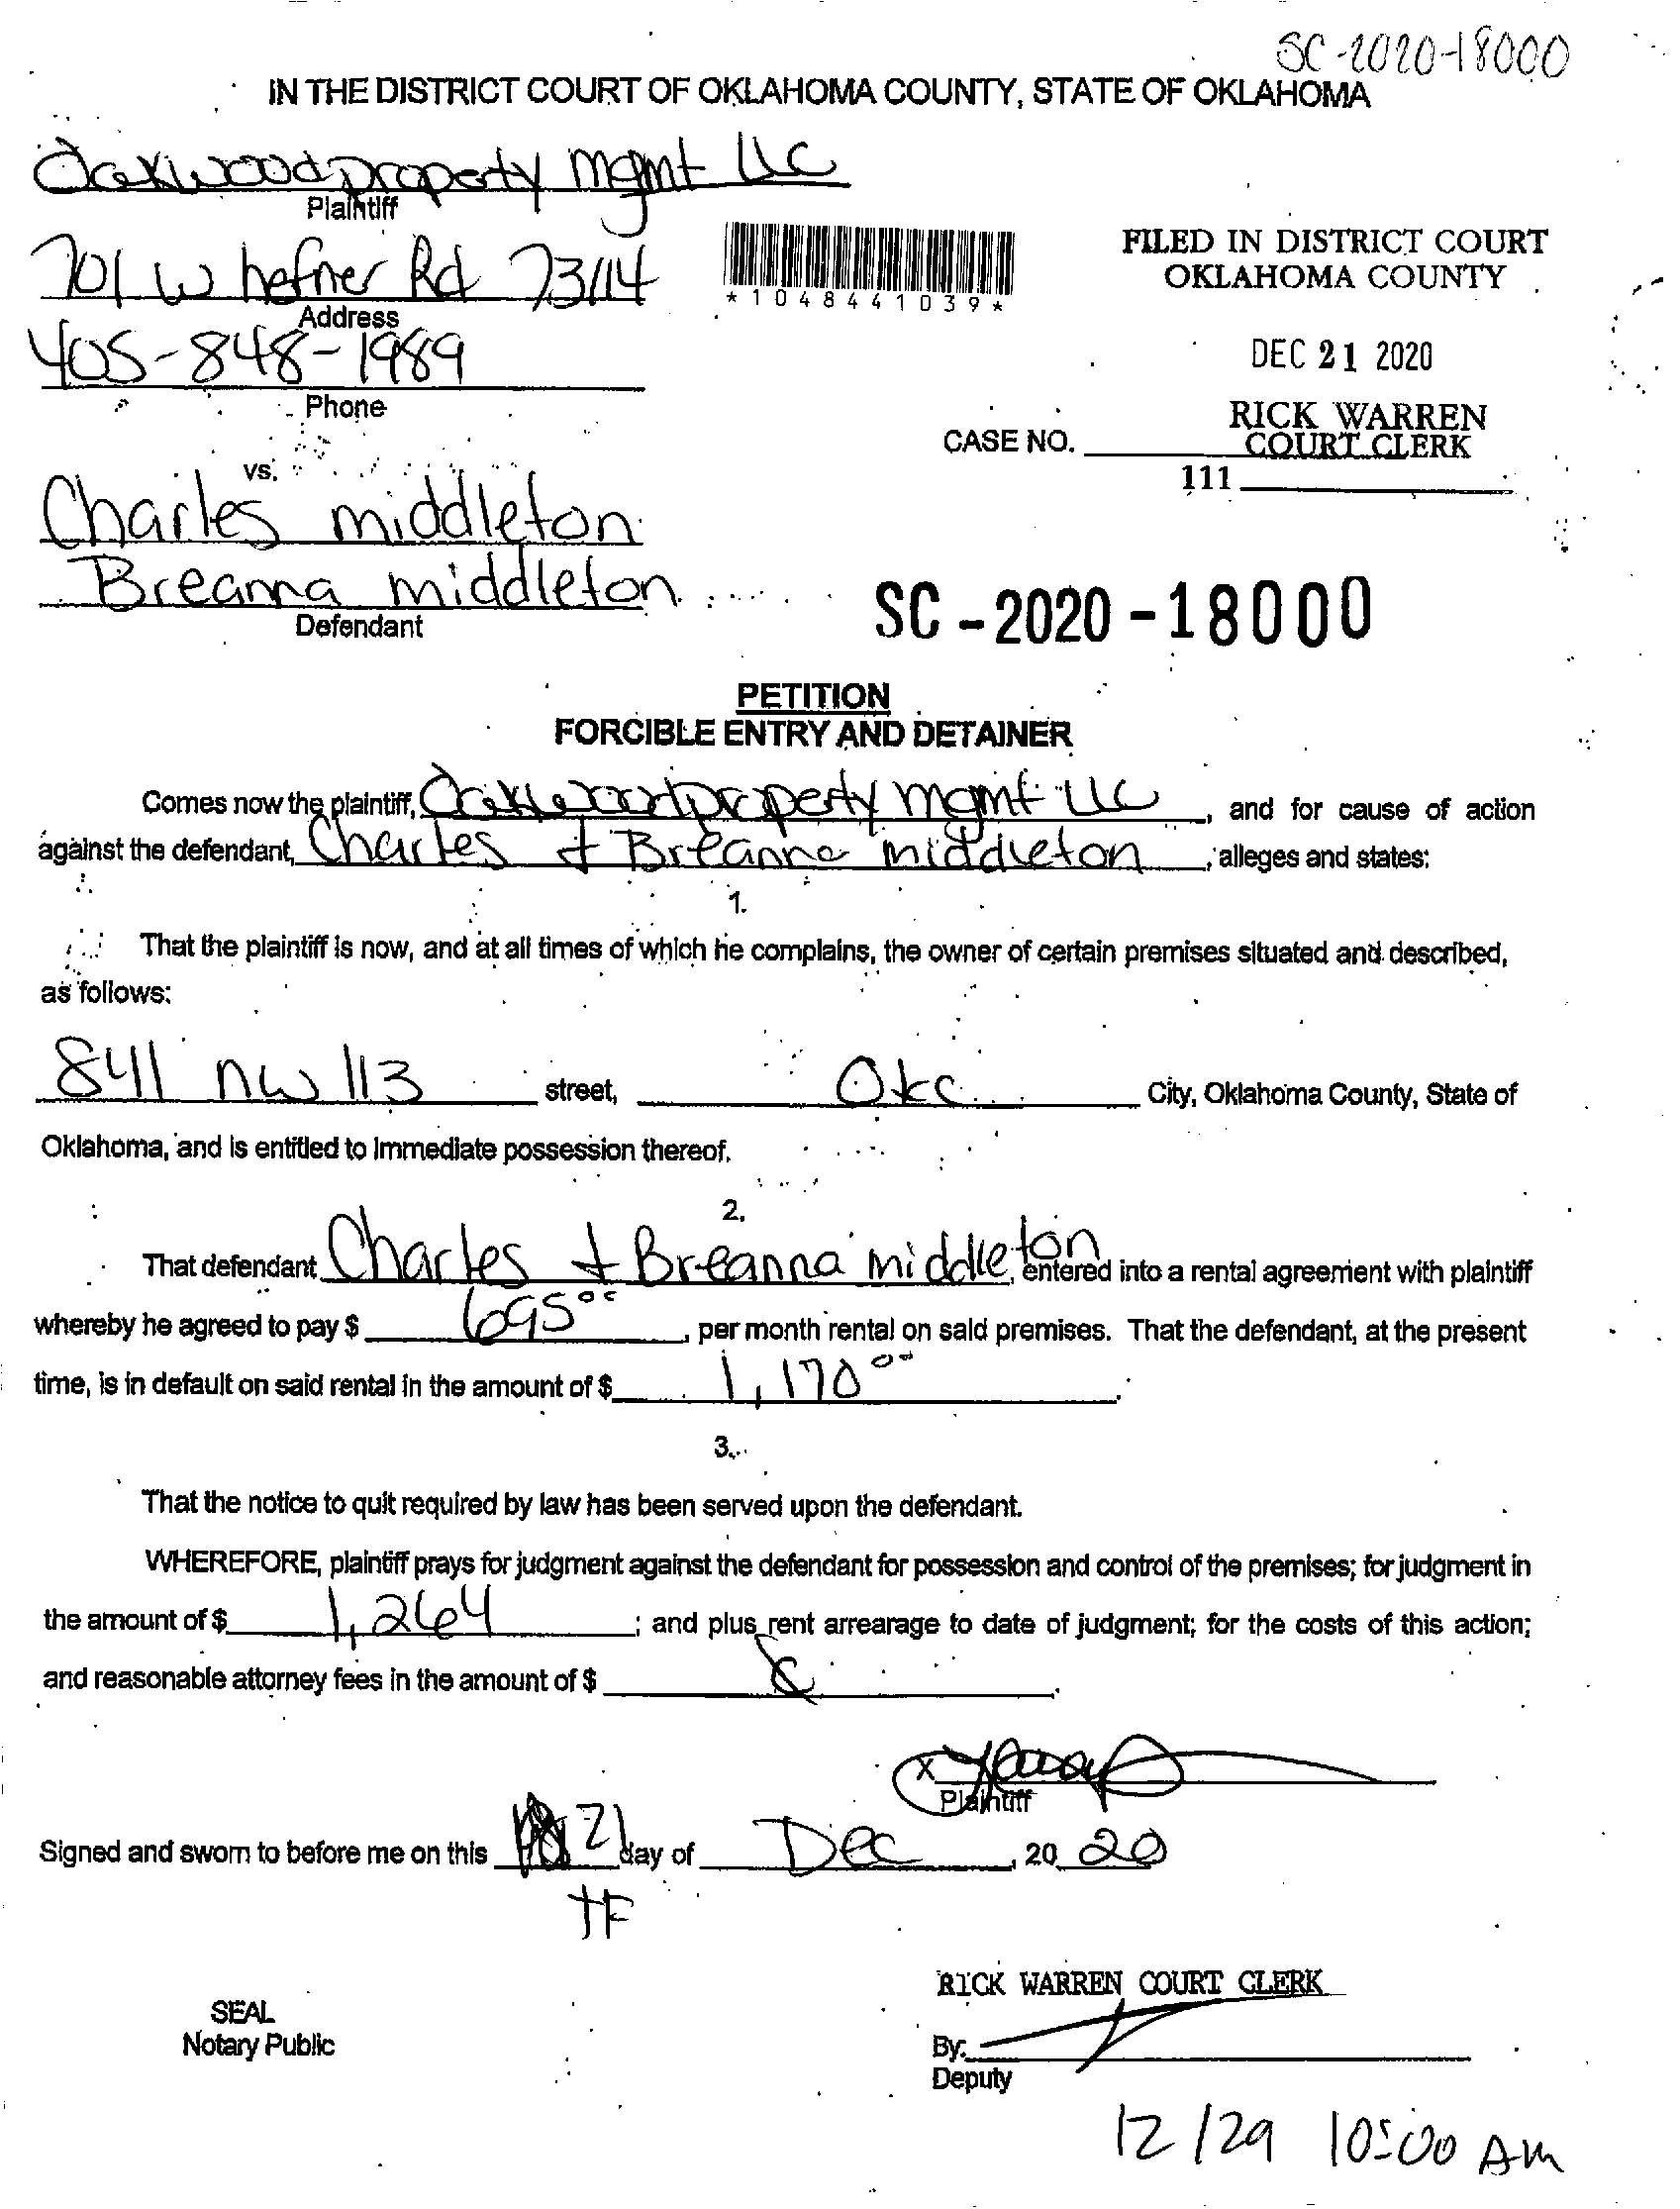 SC-2020-18000
IN THE DISTRICT COURT OF OKLAHOMA COUNTY, STATE OF OKLAHOMA
Oakwood property mgmt LLC
Plaintiff
701 W hefner Rd 73114
Address
405-848-1989
Phone
*1048441039*
FILED IN DISTRICT COURT
OKLAHOMA COUNTY
DEC 21 2020
RICK WARREN
COURT CLERK
CASE NO.
111
vs.
Charles middleton
Breanna middleton
Defendant
SC-2020-18000
PETITION
FORCIBLE ENTRY AND DETAINER
Comes now the plaintiff, Oakwood property mgmt LLC, and for cause of action
against the defendant, Charles & Breanna middleton, alleges and states:
1.
That the plaintiff is now, and at all times of which he complains, the owner of certain premises situated and described,
as follows:
841 nw 113 street, Okc City, Oklahoma County, State of
Oklahoma, and is entitled to immediate possession thereof.
2.
That defendant Charles & Breanna middleton, entered into a rental agreement with plaintiff
whereby he agreed to pay $ 695.00, per month rental on said premises. That the defendant, at the present
time, is in default on said rental in the amount of $ 1,170.00.
3.
That the notice to quit required by law has been served upon the defendant.
WHEREFORE, plaintiff prays for judgment against the defendant for possession and control of the premises; for judgment in
the amount of $ 1,264; and plus rent arrearage to date of judgment; for the costs of this action;
and reasonable attorney fees in the amount of $
X
Plaintiff
Signed and sworn to before me on this 21 day of Dec, 20 20
TF
RICK WARREN COURT CLERK
SEAL
Notary Public
By:
Deputy
12/29 10:00 AM